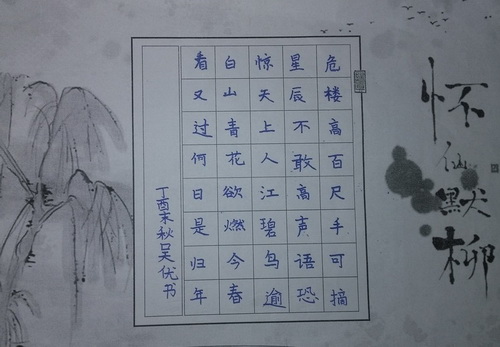 怀仙默柳
危楼高百尺手可摘
星辰不敢高声语恐
惊天上人江碧鸟逾
白山青花欲燃今春
看又过何日是归年
丁酉末秋吴优书